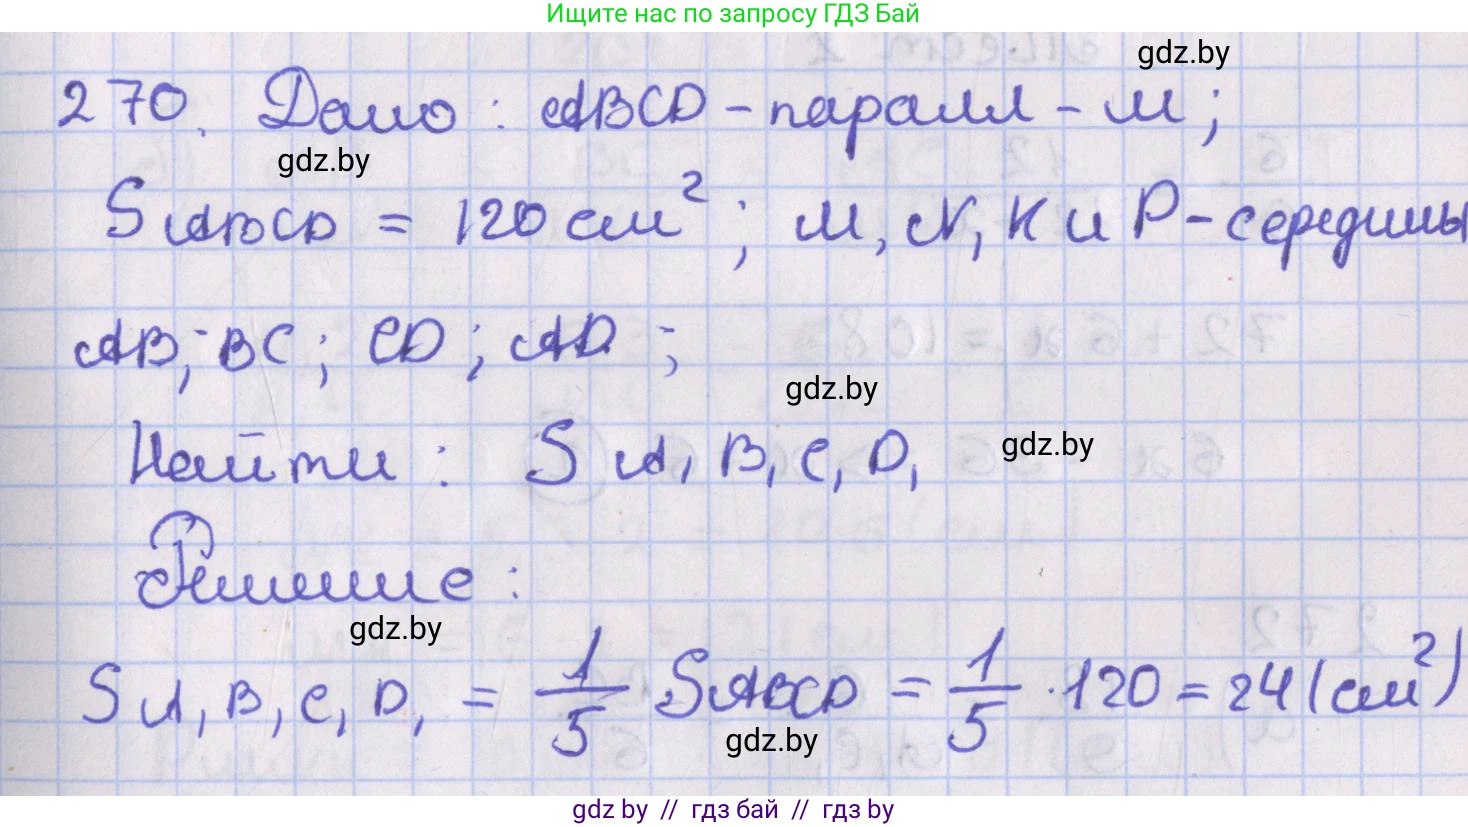 Ищите нас по запросу ГДЗ Бай
gdz.by
270. Дано: ABCD - паралл - м;
gdz.by
SABCD = 120 см²; M, N, K и P - середины
AB; BC; CD; AD;
gdz.by
Найти: SA₁B₁C₁D₁
gdz.by
Решение:
gdz.by
SA₁B₁C₁D₁ = 1/5 SABCD = 1/5 · 120 = 24 (см²)
gdz.by
gdz by // гдз бай // гдз by